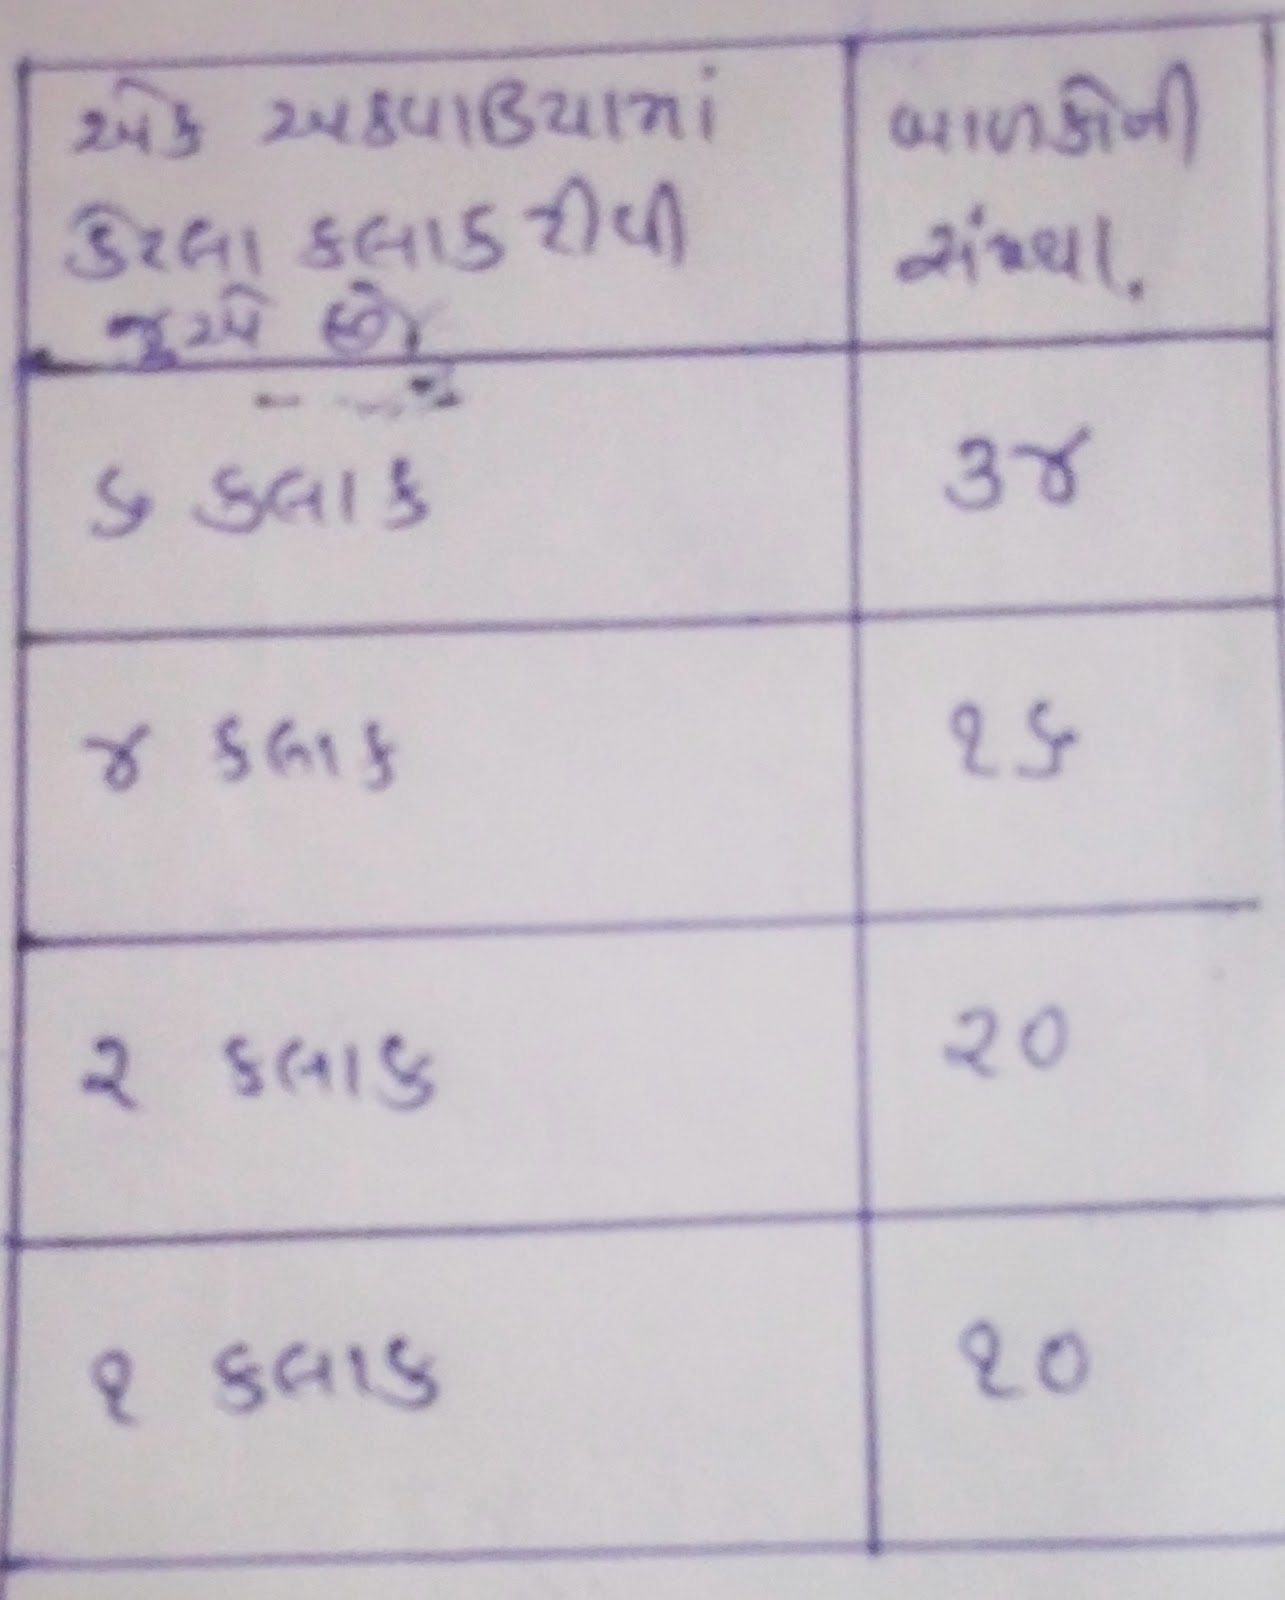 એક અઠવાડિયામાં
કેટલા કલાક ટીવી
જૂએ છે
બાળકોની
સંખ્યા.
૬ કલાક
૩૪
૪ કલાક
૧૬
૨ કલાક
૨૦
૧ કલાક
૧૦